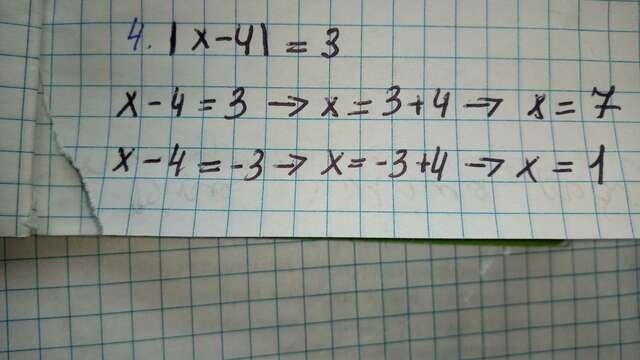 4. |x-4| = 3
x-4=3 → x=3+4 → x=7
x-4=-3 → x=-3+4 → x=1